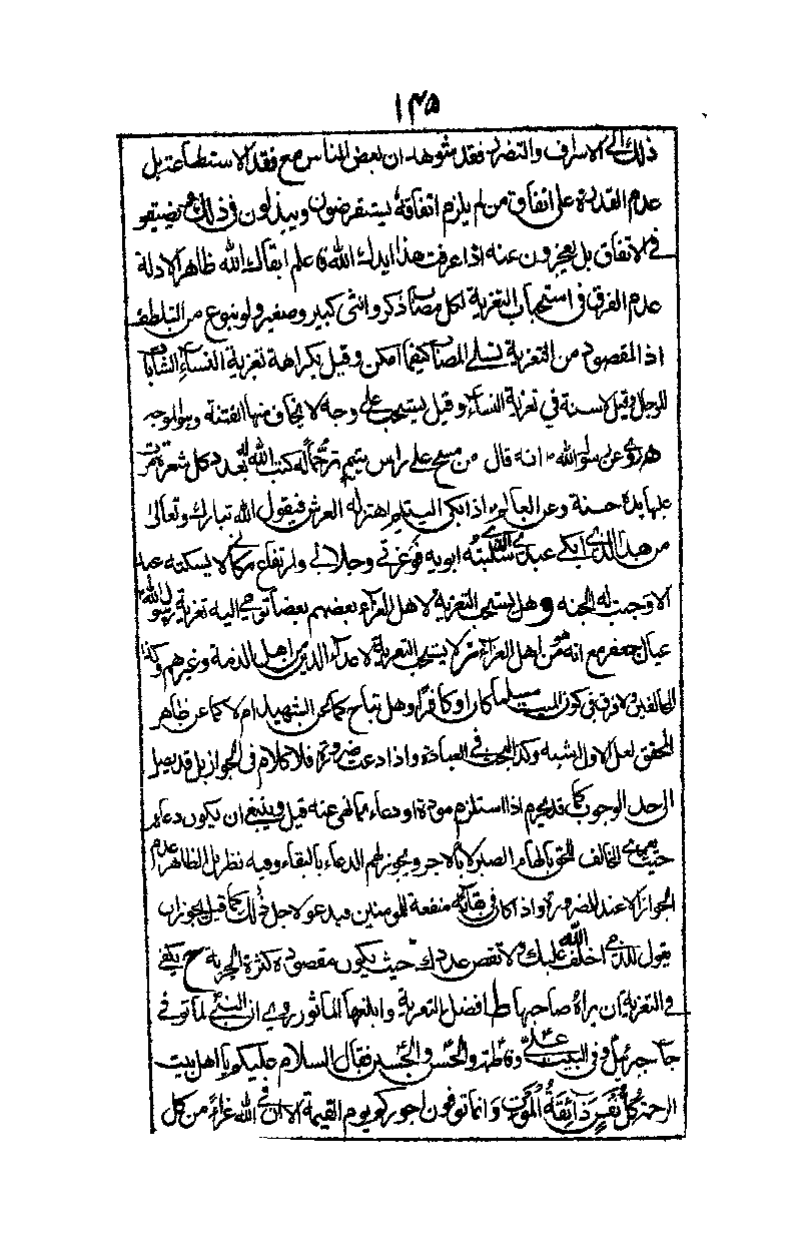 ١٤٥
ذلك الى الاسراف والتضرر فقد شوهد ان بعض الناس مع فقد الاستطاعة بل
عدم القدرة على انفاق من لم يلزم انفاقه يستقرضون ويبذلون في ذلك
في الانفاق بل يعجزون عنه اذا عرفت هذا ايدك الله فاعلم ابقاك الله ظاهر الادلة
عدم الفرق في استحباب التعزية لكل مصاب ذكر وانثى كبير وصغير ولو بنوع من التلطف
اذ المقصود من التعزية تسلى المصاب كيفما امكن وقيل بكراهة تعزية النساء الشابات
للرجل وقيل لا سنة في تعزية النساء وقيل يستحب على وجه لا يخاف منها الفتنة وهو الوجه
روى عن رسول الله ص انه قال من مسح على راس يتيم ترحما له كتب الله له بعدد كل شعرة مرت
عليها يده حسنة وعن العالم اذا بكى اليتيم اهتز له العرش فيقول الله تبارك وتعالى
من هذا الذي ابكى عبدي الذي سلبته ابويه فوعزتي وجلالي وارتفاع مكاني لا يسكته عبد
الا وجبت له الجنة وهل يستحب التعزية لاهل العزاء بعضهم بعضا
عيال جعفر مع انه هو من اهل العزاء لا يستحب التعزية لاعداء الدين من اهل الذمة وغيرهم وكذا
المخالفين ولا فرق في كون الميت مسلما كان او كافرا وهل تباح كما عن الشهيد ام لا كما عن ظاهر
المحقق لعل الاول اشبه وكذا البحث في العيادة واذا دعت ضرورة فلا كلام في الجواز بل قد يصل
الى حد الوجوب كما قد يحرم اذا استلزم مودة او دعاء مما نهى عنه قيل وينبغى ان يكون دعاء
حيث يعزى المخالف للحق بالهام الصبر لا بالاجر ويجوز لهم الدعاء بالبقاء وفيه نظر بل الظاهر عدم
الجواز الا عند الضرورة واذا كان في بقائه منفعة للمؤمنين فيدعو لاجل ذلك كما قيل يجوز ان
يقول للذمي اخلف الله عليك ولا نقص عددك حيث يكون مقصوده كثرة الجزية ح يكفى
في التعزية ان يراه صاحبها ط افضل التعزية وابلغها الماثور روى ان النبي لما توفي
جاء جبرئيل وفي البيت على وفاطمة والحسن والحسين فقال السلام عليكم يا اهل بيت
الرحمة كُلُّ نَفْسٍ ذَائِقَةُ الْمَوْتِ وَانما توفون اجوركم يوم القيمة الا ان في الله عزاء من كل